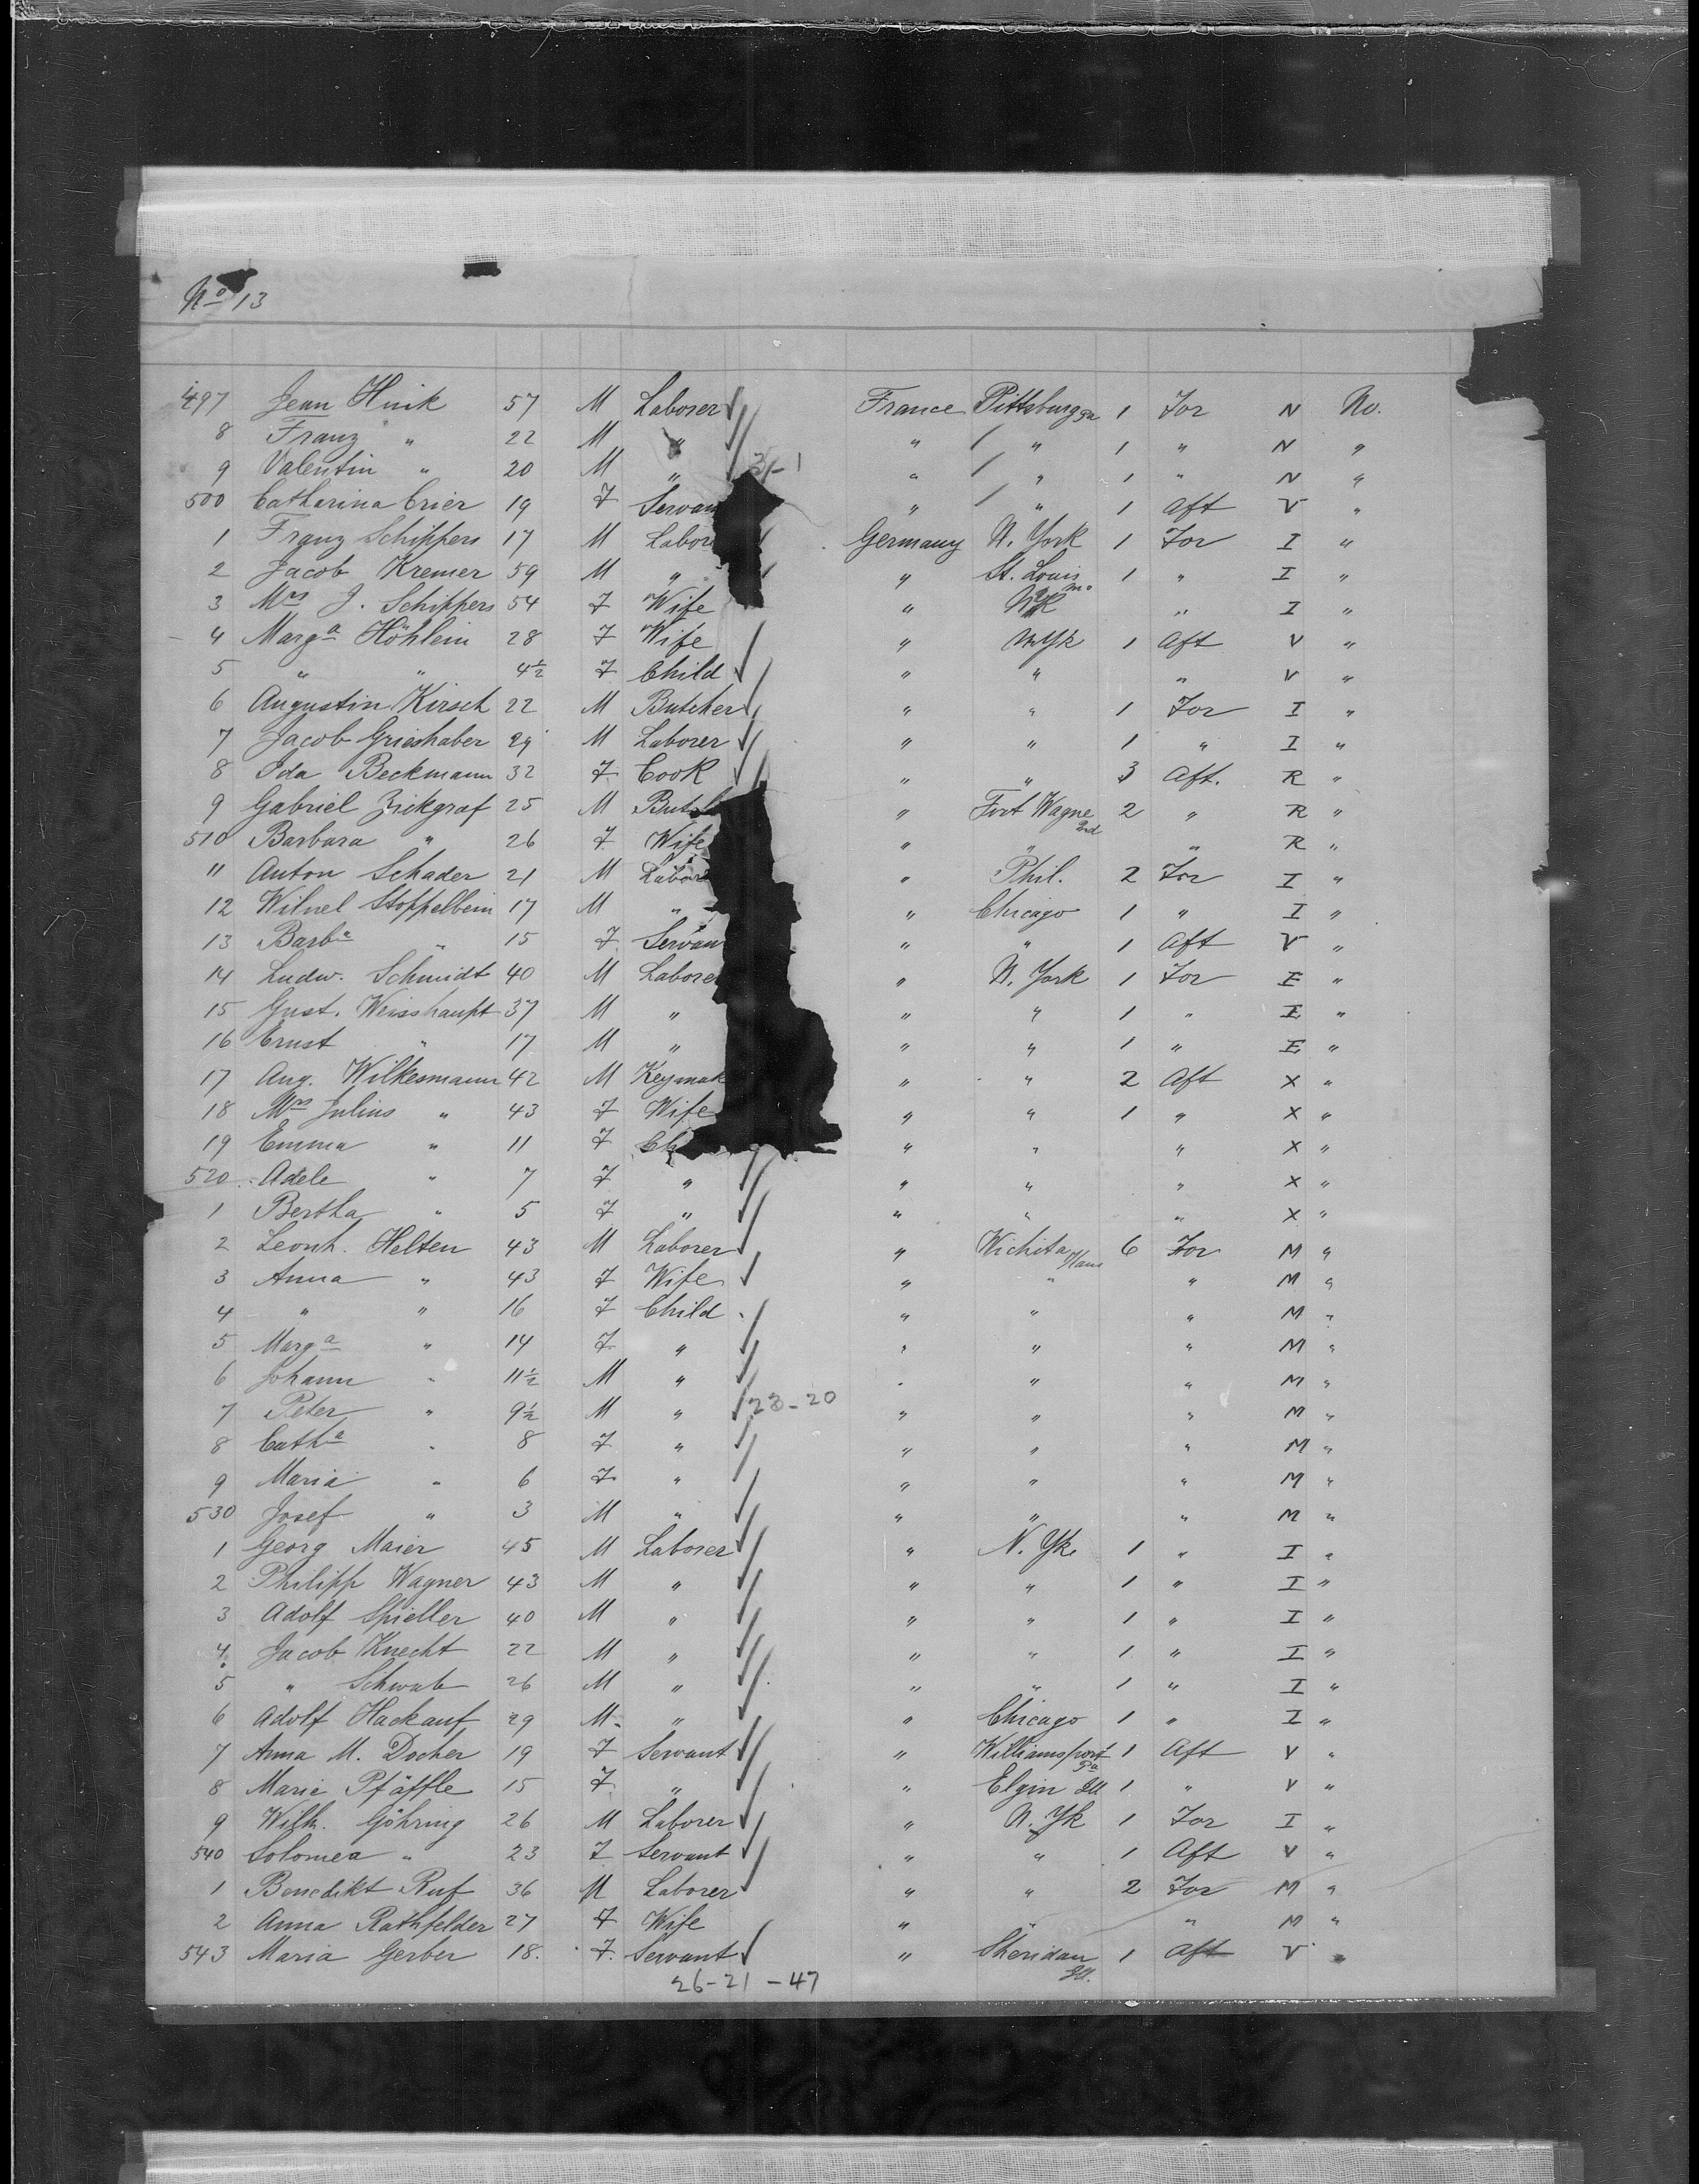 No 13
497 Jean Huik 57 M Laborer France Pittsburg Pa 1 For N No.
8 Franz " 22 M " " " 1 " N "
9 Valentin " 20 M " 3-1 " " 1 " N "
500 Catharina Crier 19 F Servan " " 1 Aft V "
1 Franz Schippers 17 M Labor Germany N. York 1 For I "
2 Jacob Kremer 59 M " " St. Louis Mo 1 " I "
3 Mrs J. Schippers 54 F Wife " NYk " I "
4 Marga Höhlein 28 F Wife " N Yk 1 Aft V "
5 " " 4½ F Child " " " V "
6 Augustin Kirsch 22 M Butcher " " 1 For I "
7 Jacob Grieshaber 29 M Laborer " " 1 " I "
8 Ida Beckmann 32 F Cook " " 3 Aft. R "
9 Gabriel Zickgraf 25 M Butch " Fort Wagne Ind 2 " R "
510 Barbara " 26 F Wife " " " R "
11 Anton Schader 21 M Labore " Phil. 2 For I "
12 Wilnel Stoppelbein 17 M " " Chicago 1 " I "
13 Barba " 15 F Servan " " 1 Aft V "
14 Ludw. Schmidt 40 M Labore " N. York 1 For E "
15 Gust. Weisshaupt 37 M " " " 1 " E "
16 Ernst " 17 M " " " 1 " E "
17 Aug. Wilkesmann 42 M Keymak " " 2 Aft X "
18 Mrs Julius " 43 F Wife " " 1 " X "
19 Emma " 11 F Ch " " " X "
520 Adele " 7 F " " " " X "
1 Bertha " 5 F " " " " X "
2 Leonh. Helten 43 M Laborer " Wichita Kans 6 For M "
3 Anna " 43 F Wife " " " M "
4 " " 16 F Child " " " M "
5 Marga " 14 F " " " " M "
6 Johann " 11½ M " " " " M "
7 Peter " 9½ M " 23-20 " " " M "
8 Catha " 8 F " " " " M "
9 Maria " 6 F " " " " M "
530 Josef " 3 M " " " " M "
1 Georg Maier 45 M Laborer " N. Yk. 1 " I "
2 Philipp Wagner 43 M " " " 1 " I "
3 Adolf Spieller 40 M " " " 1 " I "
4 Jacob Knecht 22 M " " " 1 " I "
5 " Schwab 26 M " " " 1 " I "
6 Adolf Hackauf 29 M " " Chicago 1 " I "
7 Anna M. Docher 19 F Servant " Williamsport Pa 1 Aft V "
8 Marie Pfäffle 15 F " " Elgin Ill 1 " V "
9 Wilh. Göhring 26 M Laborer " N. Yk 1 For I "
540 Solomea " 23 F Servant " " 1 Aft V "
1 Benedikt Ruf 36 M Laborer " " 2 For M "
2 Anna Rathfelder 27 F Wife " " " M "
543 Maria Gerber 18. F. Servant " Sheridan Ill. 1 Aft V "
26-21-47